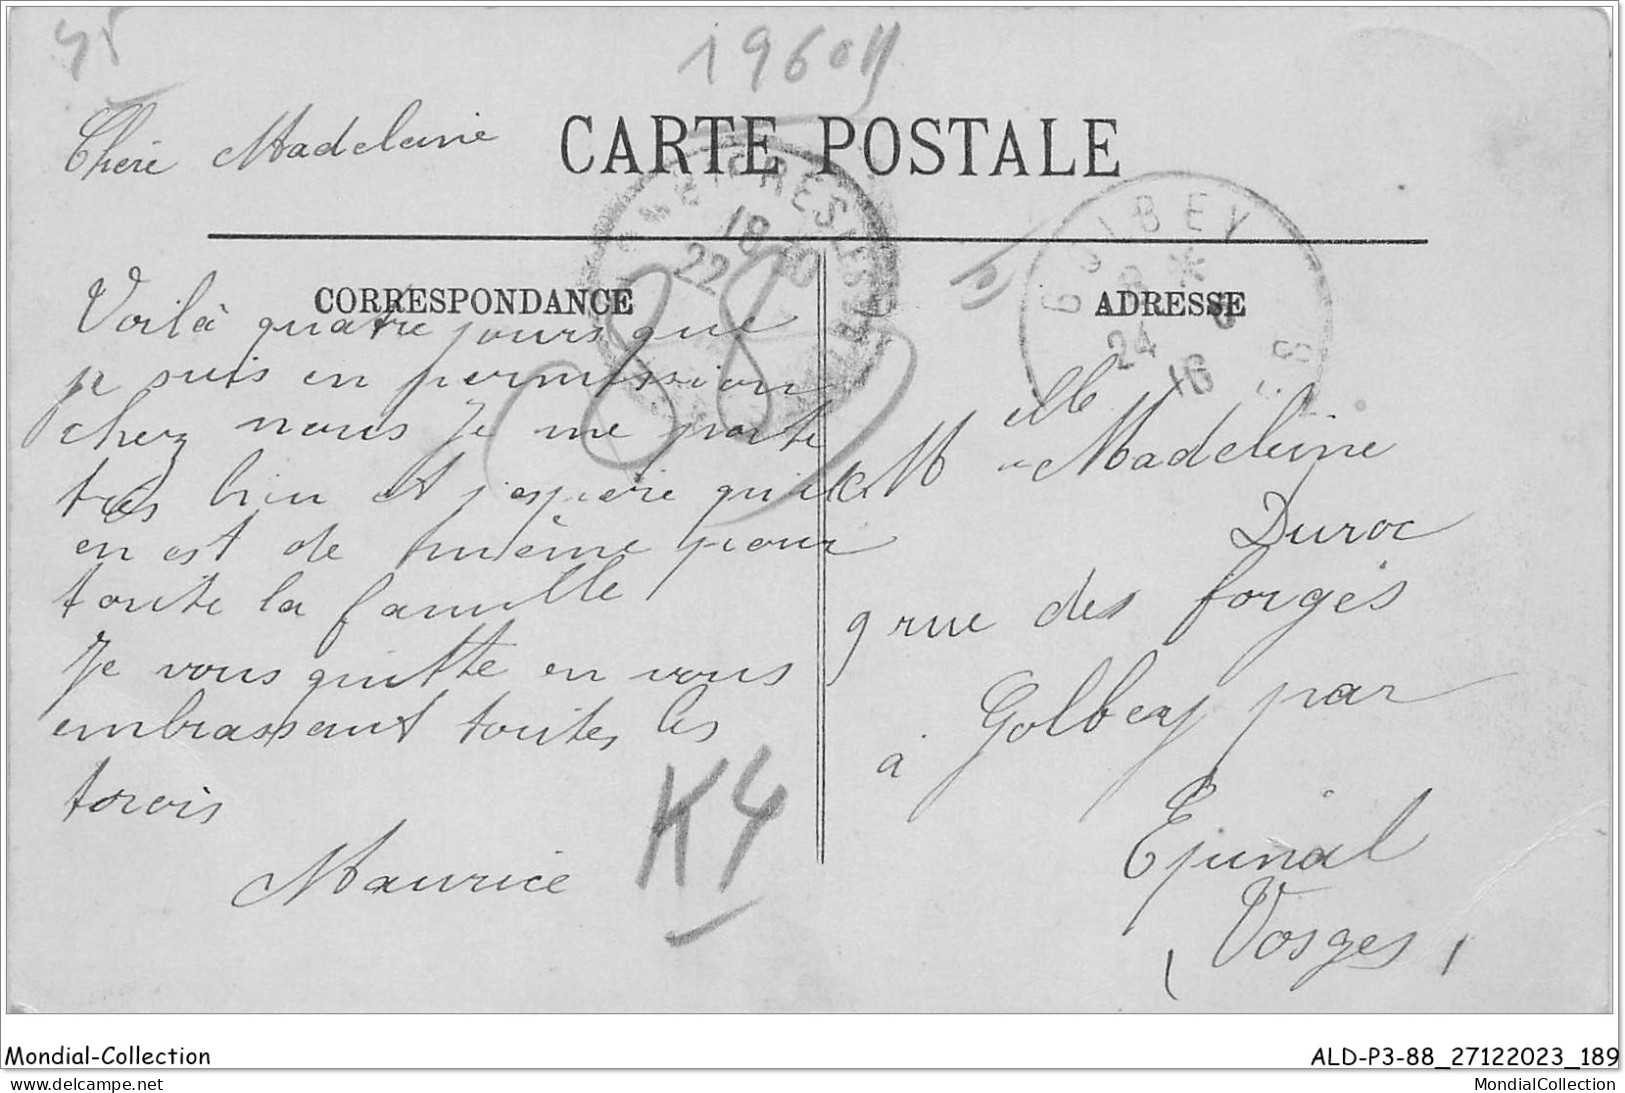 45
1960
Chere Madeleine
CARTE POSTALE
GOLBEY
18
22
24
16
CORRESPONDANCE
ADRESSE
Voilà quatre jours que
je suis en permission
chez nous Je me porte
tres bien et j'espère qu'il
en est de même pour
toute la famille
Je vous quitte en vous
embrassant toutes les
trois
Maurice
K4
88
Melle Madeleine
Duroc
9 rue des forges
à Golbey par
Epinal
(Vosges)
Mondial-Collection
ALD-P3-88_27122023_189
MondialCollection.
MondialCollection